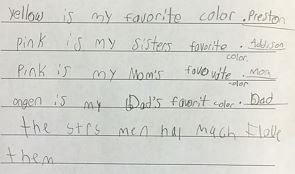 yellow is my favorite color. Preston
pink is my sisters favorite color. Addison
Pink is my Mom's favouite color. Mom
ongen is my Dad's favorit color. Dad
the strs men hal mach I love
them